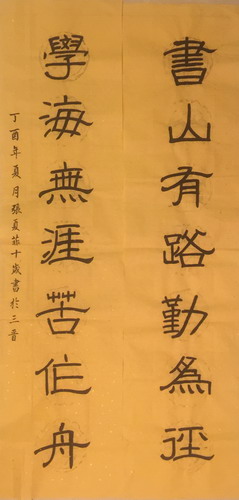 書山有路勤為徑
學海無涯苦作舟
丁酉年夏月張夏菲十歲書於三晉